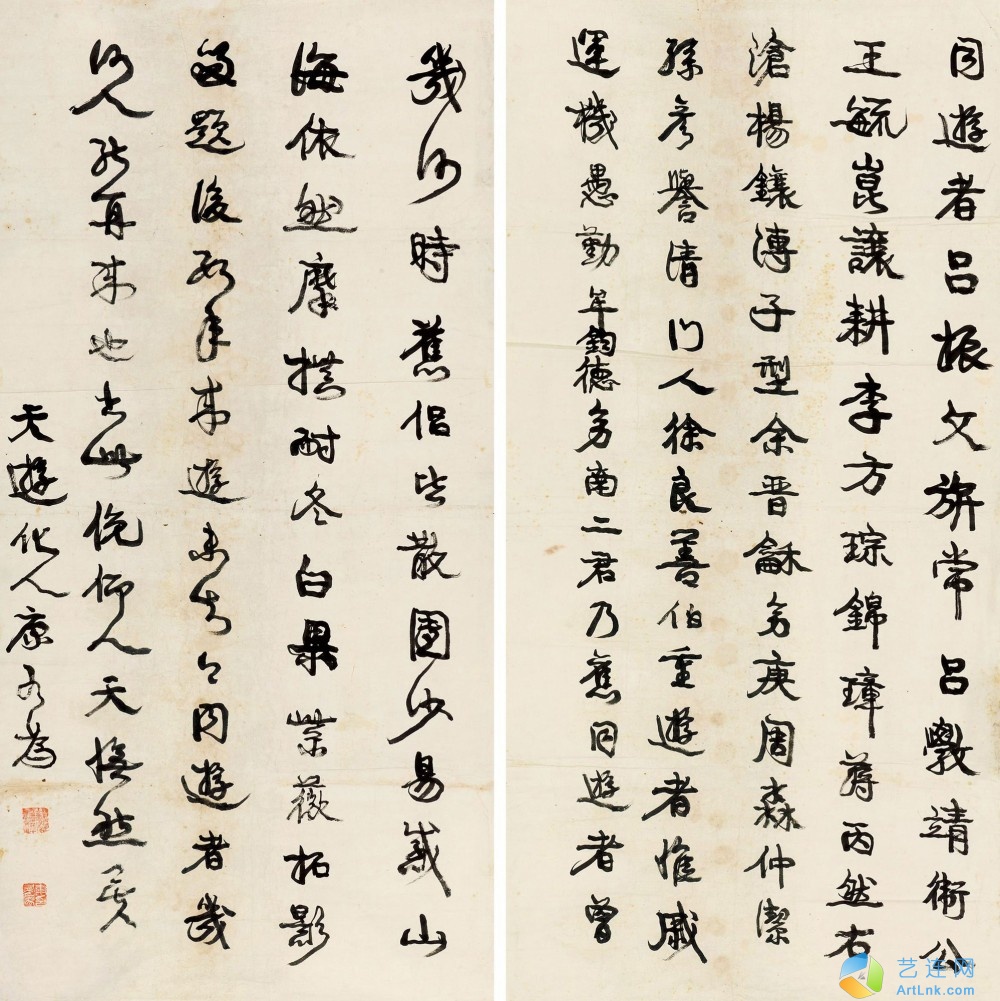 同遊者呂振文旂常呂斅靖術公
王毓崑讓耕李方琮錦璋蔣丙然右
滄楊鑲溥子型余晉龢幼庚周森仲潔
孫彥譽清門人徐良善伯重遊者惟戚
運機愚勤牟鈞德幼南二君乃舊同遊者曾
幾何時舊侶皆散團沙易感山
海依然摩撫耐冬白果紫薇柘影
留題後年來遊未知同遊者幾
何人能再來也書此俛仰人天憮然
天遊化人康有為
艺连网
ArtLnk.com